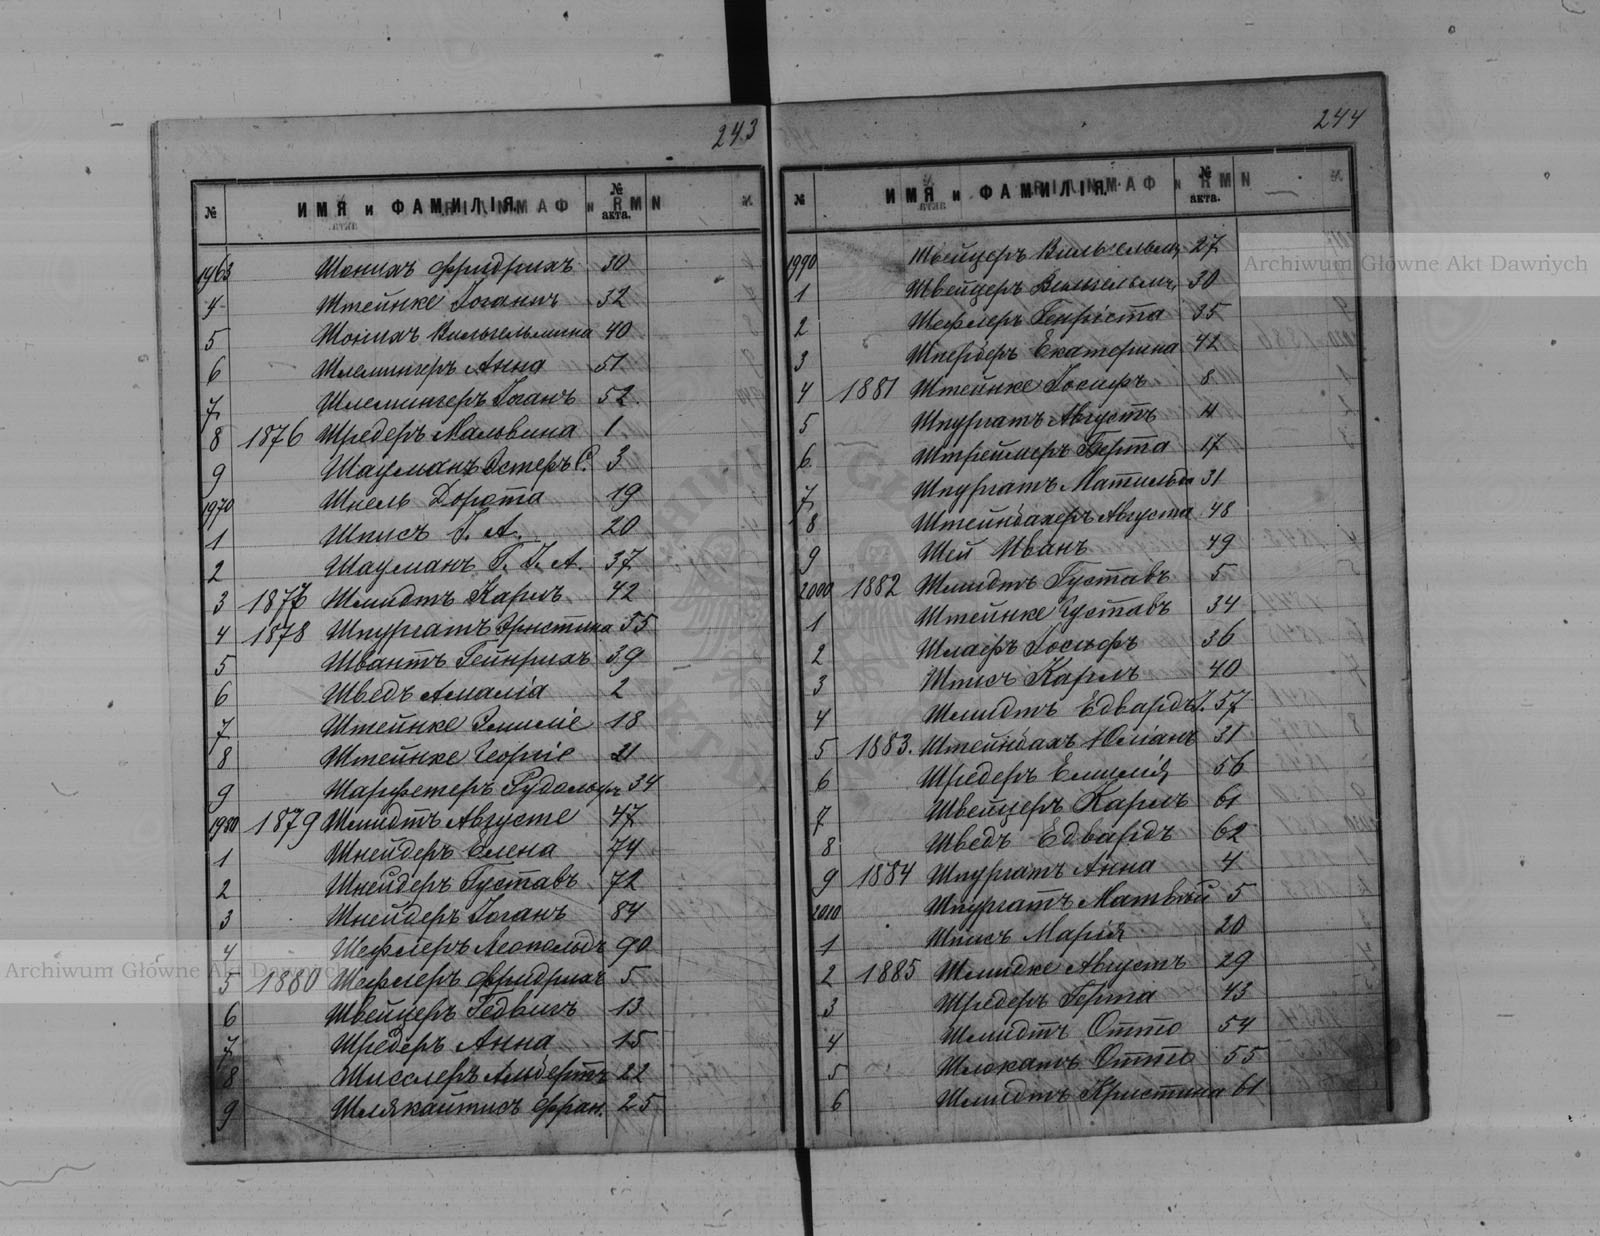 243
№ ИМЯ и ФАМИЛІЯ № акта.
1963 Шонихъ Фридрихъ 30
4 Штейнке Іоганъ 32
5 Шонихъ Вильгельмина 40
6 Шлемингеръ Анна 51
7 Шлемингеръ Іоганъ 52
8 1876 Шредеръ Мальвина 1
9 Шауманъ Эстеръ С. 3
1970 Шнель Дорота 19
1 Шписъ Г. А. 20
2 Шауманъ Г. И. А. 37
3 1877 Шмидтъ Карлъ 42
4 1878 Шпургатъ Христина 55
5 Швантъ Гейнрихъ 39
6 Шведъ Амалія 2
7 Штейнке Эмиліе 18
8 Штейнке Георгіе 21
9 Шарфетеръ Рудольфъ 34
1980 1879 Шмидтъ Августе 47
1 Шнейдеръ Елена 74
2 Шнейдеръ Густавъ 72
3 Шнейдеръ Іоганъ 84
4 Шефлеръ Леопольдъ 90
5 1880 Шефлеръ Фридрихъ 5
6 Швейцеръ Гедвигъ 13
7 Шредеръ Анна 15
8 Шисслеръ Альбертъ 22
9 Шлякайтисъ Фран. 25
244
№ ИМЯ и ФАМИЛІЯ № акта.
1990 Швейцеръ Вильгельм. 27
1 Швейцеръ Вильгельм. 30
2 Шефлеръ Генріета 35
3 Шредеръ Екатерина 42
4 1881 Штейнке Іосифъ 8
5 Шпургатъ Августъ 11
6 Штреймеръ Берта 17
7 Шпургатъ Матильда 31
8 Штейнбахеръ Августа 48
9 Шей Иванъ 49
2000 1882 Шмидтъ Густавъ 5
1 Штейнке Густавъ 34
2 Шлафъ Іосифъ 36
3 Шписъ Карлъ 40
4 Шмидтъ Едвардъ І. 57
5 1883. Штейнбахъ Юліанъ 31
6 Шредеръ Емилія 56
7 Швейцеръ Карлъ 61
8 Шведъ Едвардъ 62
9 1884 Шпургатъ Анна 4
2010 Шпургатъ Матвѣй 5
1 Шписъ Марія 20
2 1885 Шмидке Августъ 29
3 Шредеръ Берта 43
4 Шмидтъ Отто 54
5 Шлокатъ Отто 55
6 Шмидтъ Христина 61
Archiwum Główne Akt Dawnych
Archiwum Główne Akt Dawnych